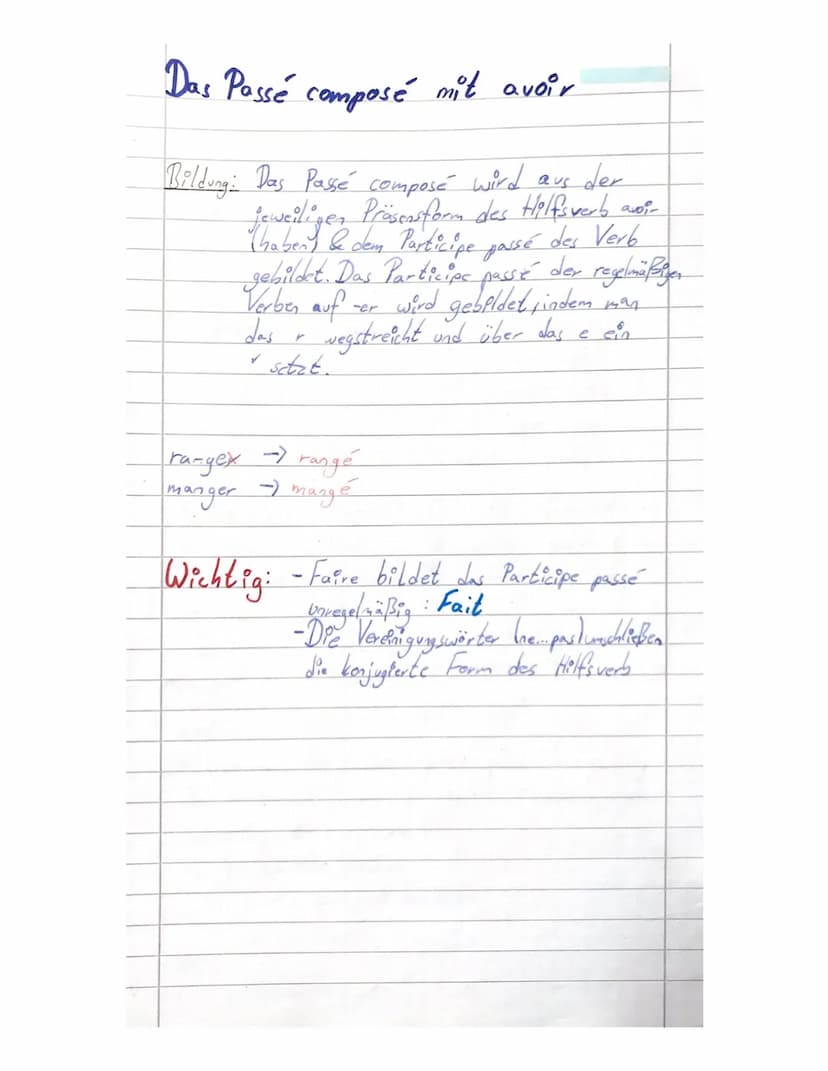 Das Passé composé mit avoir
Bildung: Das Passé composé wird aus der
jeweiligen Präsensform des Hilfsverb avoir
(haben) & dem Participe passé des Verb
gebildet. Das Participe passé der regelmäßigen
Verben auf -er wird gebildet, indem man
das r wegstreicht und über das e ein
´ setzt.
ranger → rangé
manger → mangé
Wichtig: - Faire bildet das Participe passé
unregelmäßig: Fait
- Die Vereinigungswörter (ne...pas) umschließen
die konjugierte Form des Hilfsverb